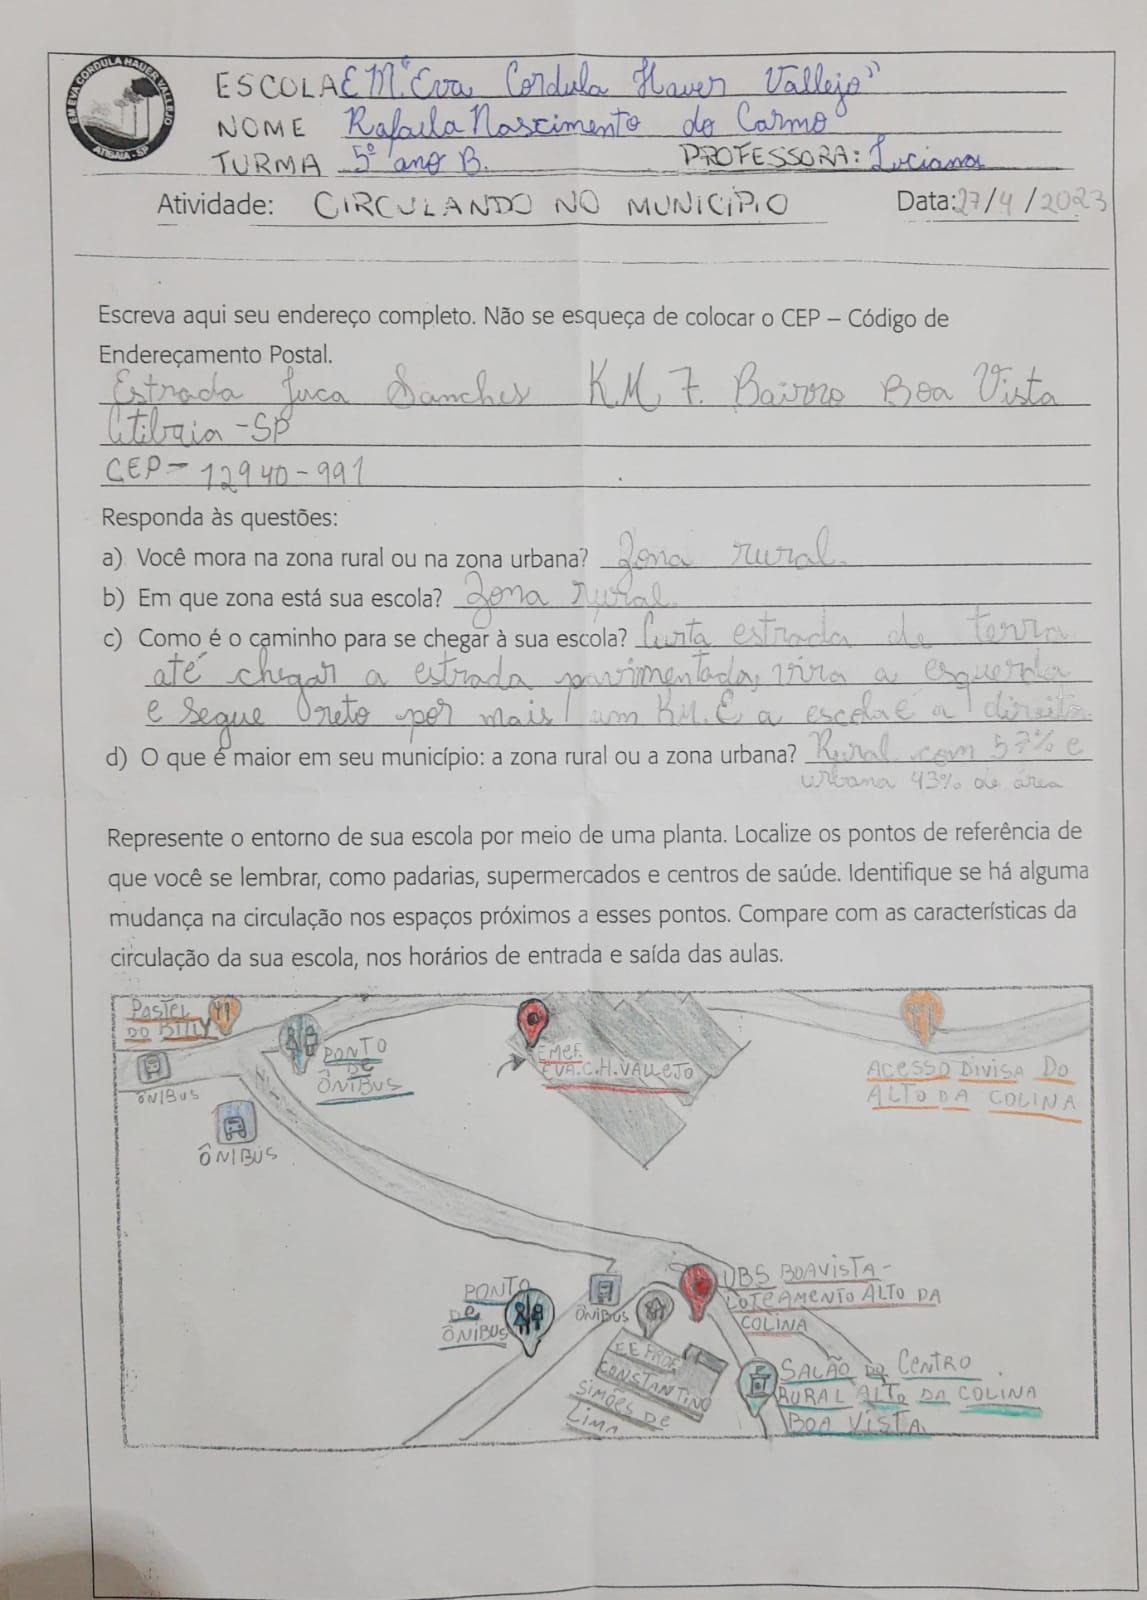 EM EVA CORDULA HAUER VALLEJO
ATIBAIA - SP
ESCOLA E M. "Eva Cordula Hauer Vallejo"
NOME Rafaela Nascimento do Carmo
TURMA 5º ano B. PROFESSORA: Luciana
Atividade: CIRCULANDO NO MUNICÍPIO Data: 27/4/2023
Escreva aqui seu endereço completo. Não se esqueça de colocar o CEP – Código de
Endereçamento Postal.
Estrada Juca Sanches KM 7. Bairro Boa Vista
Atibaia - SP
CEP - 12940-991
Responda às questões:
a) Você mora na zona rural ou na zona urbana? Zona rural.
b) Em que zona está sua escola? Zona rural.
c) Como é o caminho para se chegar à sua escola? Curta estrada de terra
até chegar a estrada pavimentada, vira a esquerda
e segue reto por mais um KM. E a escola é a direita.
d) O que é maior em seu município: a zona rural ou a zona urbana? Rural com 57% e
urbana 43% de área
Represente o entorno de sua escola por meio de uma planta. Localize os pontos de referência de
que você se lembrar, como padarias, supermercados e centros de saúde. Identifique se há alguma
mudança na circulação nos espaços próximos a esses pontos. Compare com as características da
circulação da sua escola, nos horários de entrada e saída das aulas.
PASTEL
DO BILLY
ÔNIBUS
PONTO
DE
ÔNIBUS
ÔNIBUS
EMEF.
EVA.C.H.VALLEJO
ACESSO DIVISA DO
ALTO DA COLINA
PONTO
DE
ÔNIBUS
ÔNIBUS
UBS BOAVISTA -
LOTEAMENTO ALTO DA
COLINA
EE PROF
CONSTANTINO
SIMÕES DE
LIMA
SALÃO DO CENTRO
RURAL ALTO DA COLINA
BOA VISTA